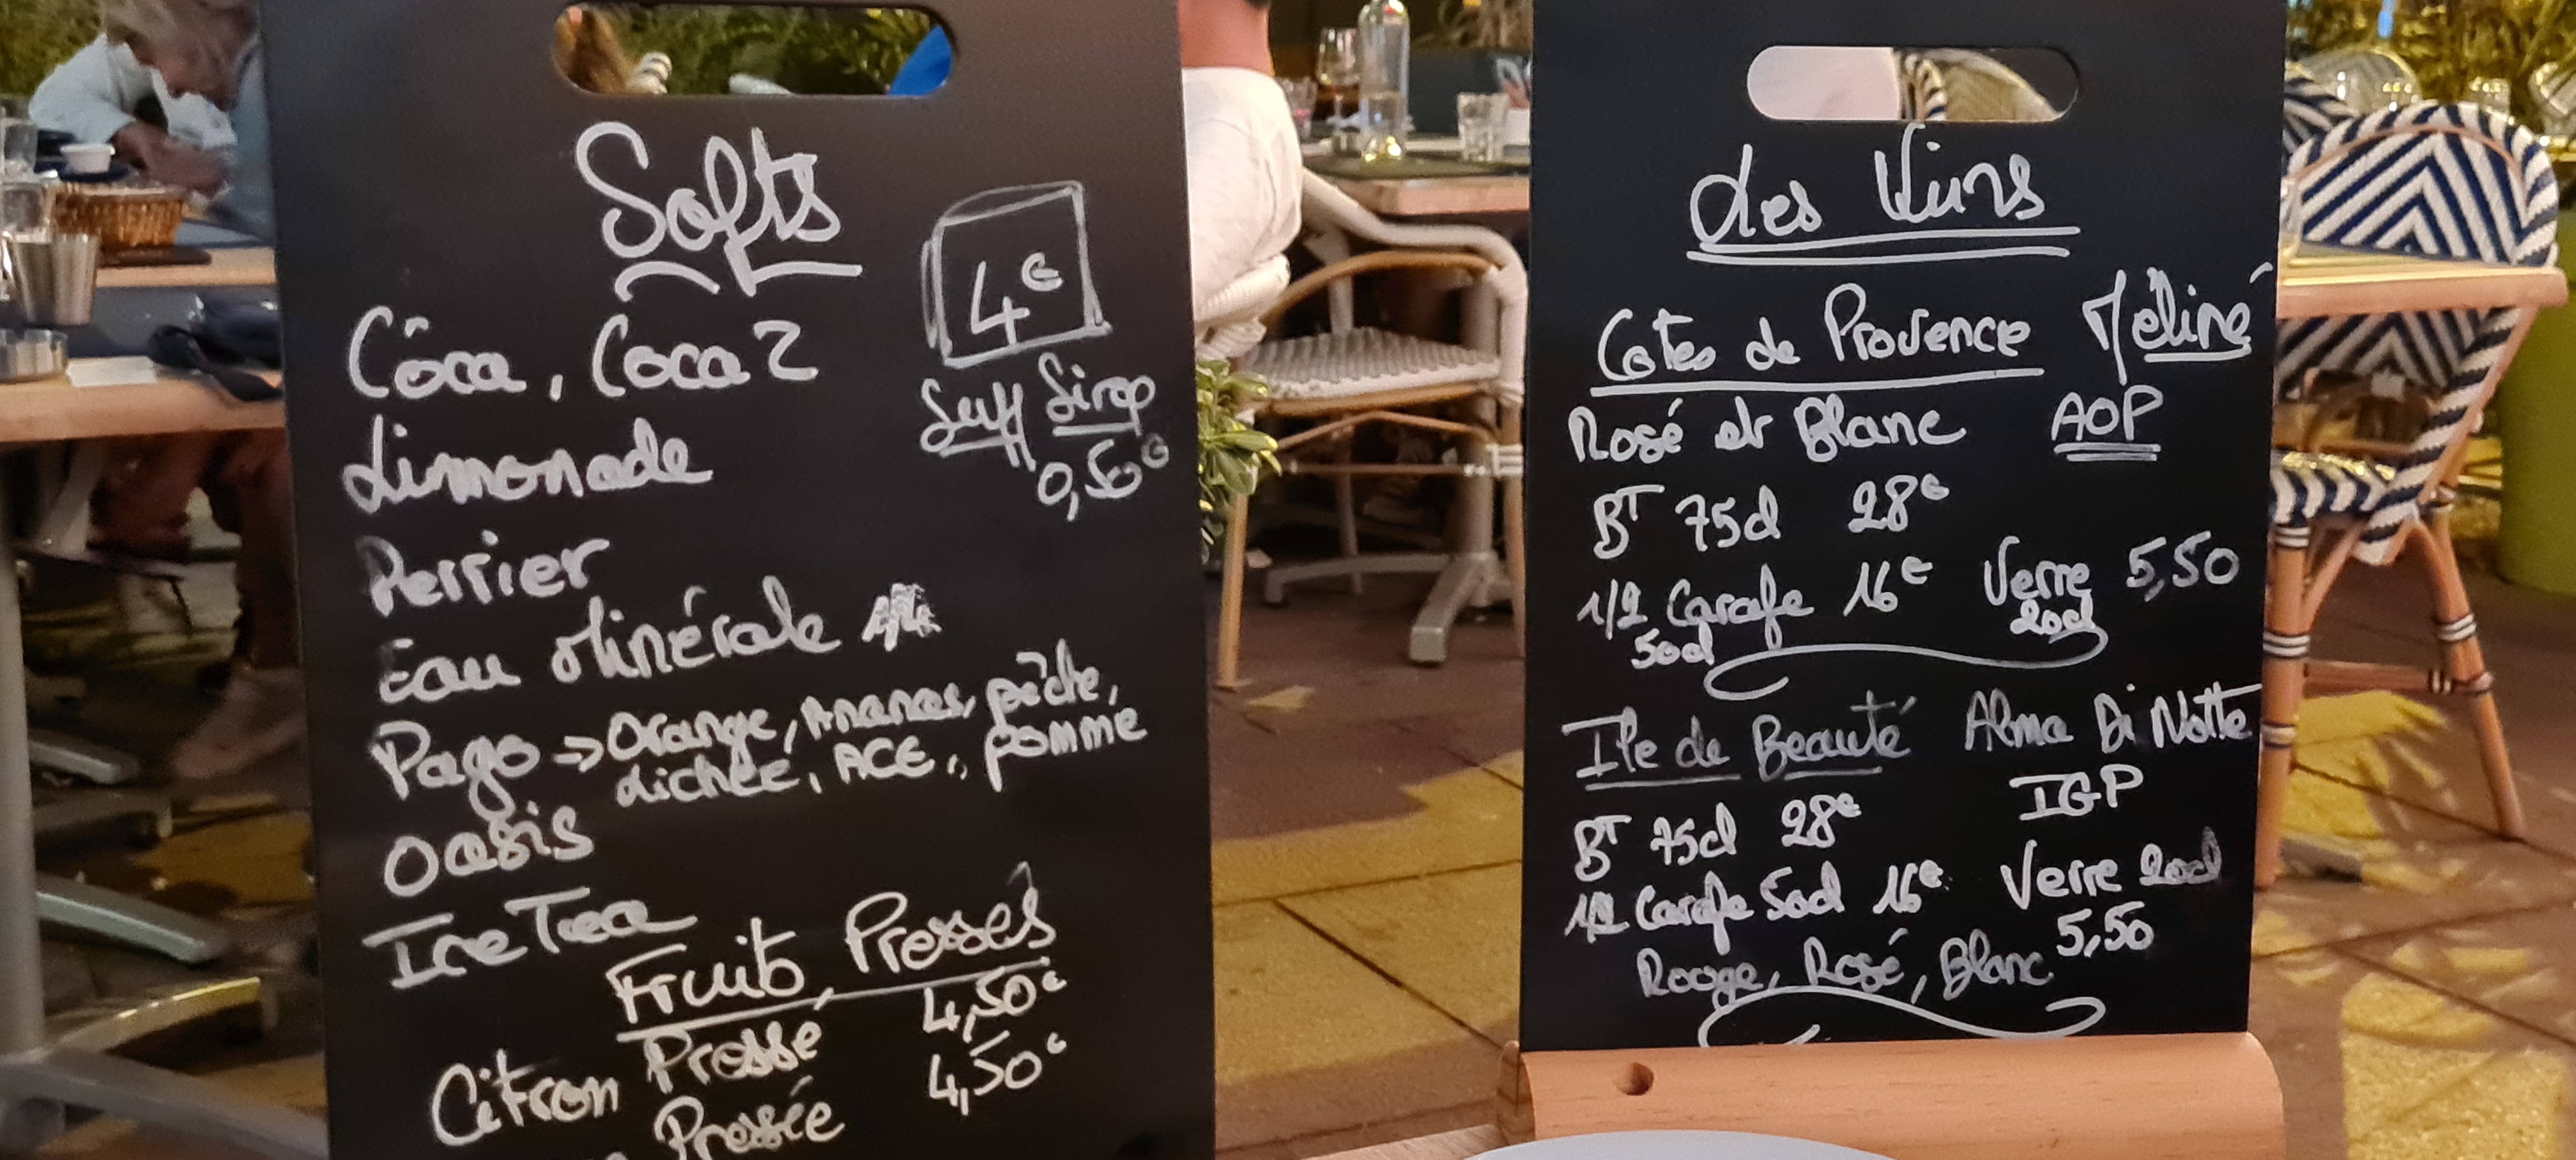 Softs
4€
Coca, Coca Z
Supp Sirop
0,50€
Limonade
Perrier
Eau Minérale
Pago → Orange, Ananas, pêche,
Lichée, ACE, pomme
Oasis
Ice Tea
Fruits Pressés
Citron Pressé 4,50€
Pressée 4,50€
Les Vins
Cotes de Provence Méliné
Rosé et Blanc AOP
BT 75cl 28€
1/2 Carafe 16€ Verre 5,50
50cl 20cl
Ile de Beauté Alma Di Notte
IGP
BT 75cl 28€
1/2 Carafe 50cl 16€ Verre 20cl
5,50
Rouge, Rosé, Blanc